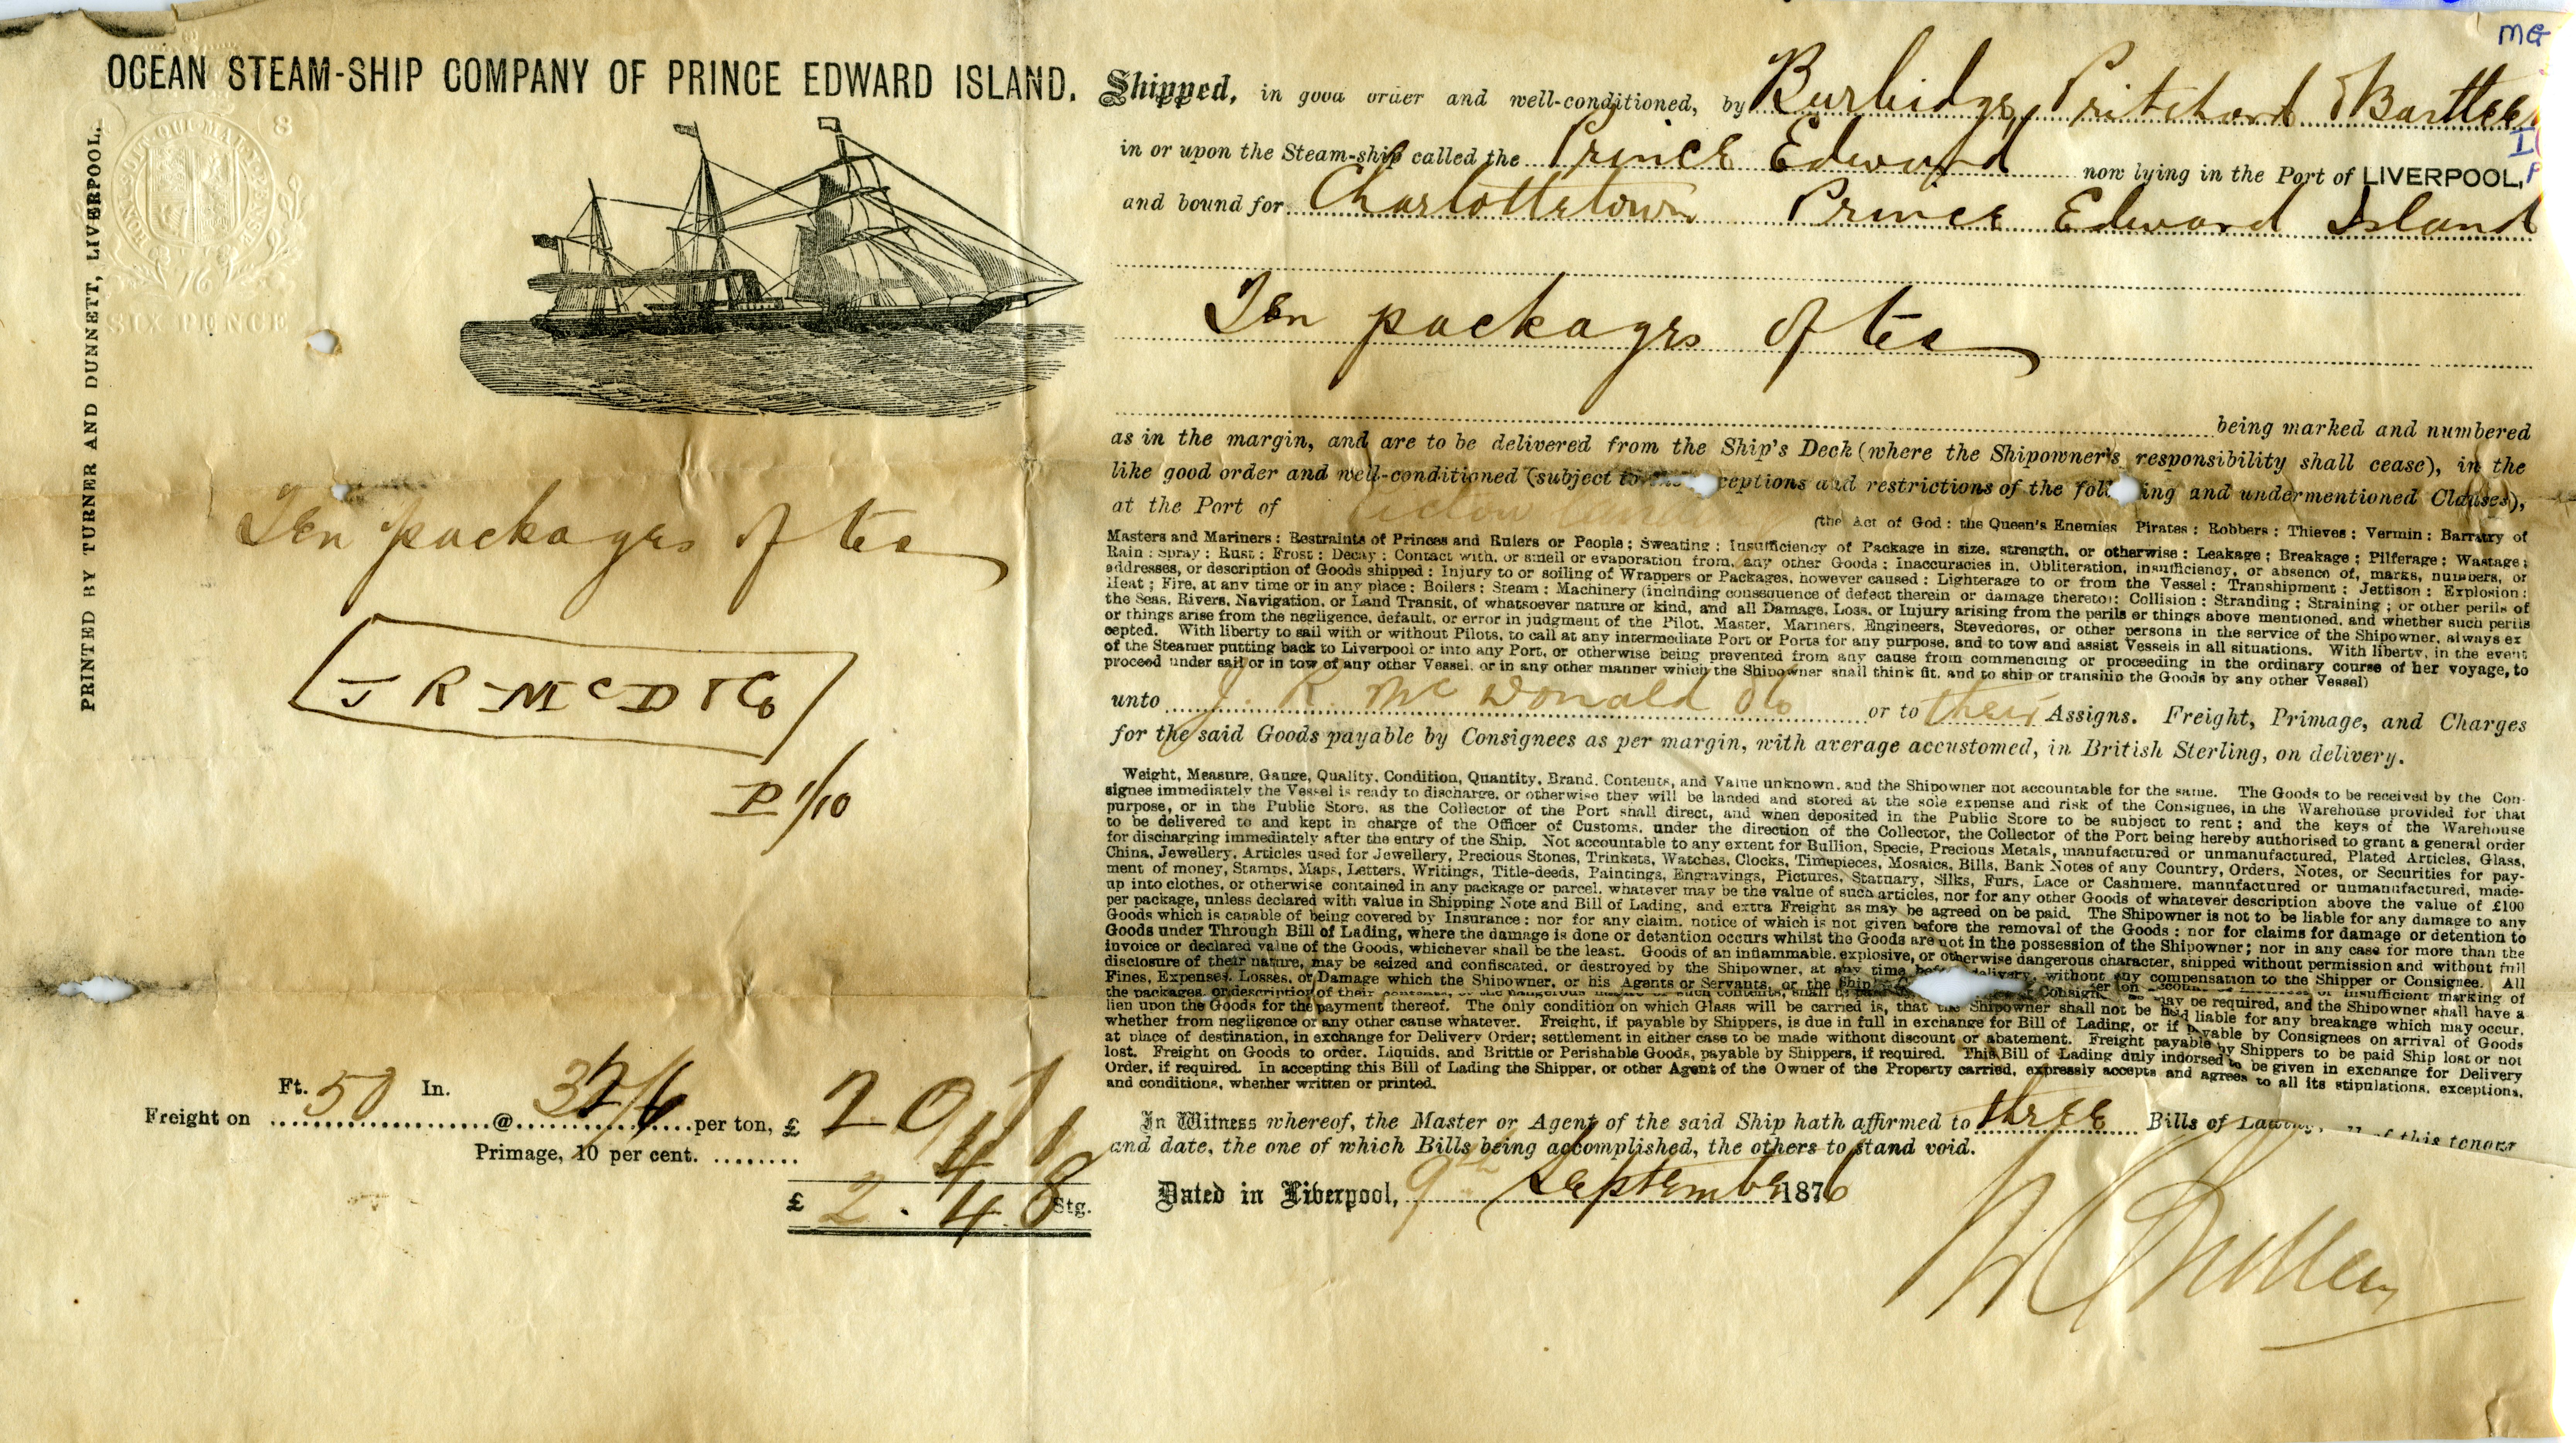 OCEAN STEAM-SHIP COMPANY OF PRINCE EDWARD ISLAND.
PRINTED BY TURNER AND DUNNETT, LIVERPOOL.
HONI SOIT QUI MAL Y PENSE
8
76
SIX PENCE
Ten packages of tea
J R McD & Co
P 1/10
Ft. 50 In.
Freight on @ per ton, £ 2 0 7
Primage, 10 per cent. 4 1
£ 2 . 4 8 Stg.
MG
Shipped, in good order and well-conditioned, by Burbidge, Pritchard & Bartlee
in or upon the Steam-ship called the Prince Edward now lying in the Port of LIVERPOOL,
and bound for Charlottetown Prince Edward Island
Ten packages of tea
being marked and numbered
as in the margin, and are to be delivered from the Ship's Deck (where the Shipowner's responsibility shall cease), in the
like good order and well-conditioned (subject to ceptions and restrictions of the foll ing and undermentioned Clauses),
at the Port of (the Act of God: the Queen's Enemies Pirates: Robbers: Thieves: Vermin: Barratry of
Masters and Mariners: Restraints of Princes and Rulers or People; Sweating; Insufficiency of Package in size, strength, or otherwise: Leakage; Breakage; Pilferage; Wastage;
Rain: Spray: Rust: Frost: Decay: Contact with, or smell or evaporation from, any other Goods: Inaccuracies in, Obliteration, insufficiency, or absence of, marks, numbers, or
addresses, or description of Goods shipped: Injury to or soiling of Wrappers or Packages, however caused: Lighterage to or from the Vessel: Transhipment: Jettison: Explosion:
Heat; Fire, at any time or in any place: Boilers: Steam: Machinery (including consequence of defect therein or damage thereto): Collision: Stranding: Straining; or other perils of
the Seas, Rivers, Navigation, or Land Transit, of whatsoever nature or kind, and all Damage, Loss, or Injury arising from the perils or things above mentioned, and whether such perils
or things arise from the negligence, default, or error in judgment of the Pilot, Master, Mariners, Engineers, Stevedores, or other persons in the service of the Shipowner, always ex
cepted. With liberty to sail with or without Pilots, to call at any intermediate Port or Ports for any purpose, and to tow and assist Vessels in all situations. With liberty, in the event
of the Steamer putting back to Liverpool or into any Port, or otherwise being prevented from any cause from commencing or proceeding in the ordinary course of her voyage, to
proceed under sail or in tow of any other Vessel, or in any other manner which the Shipowner shall think fit, and to ship or tranship the Goods by any other Vessel)
unto J. R. McDonald & Co or to their Assigns. Freight, Primage, and Charges
for the said Goods payable by Consignees as per margin, with average accustomed, in British Sterling, on delivery.
Weight, Measure, Gauge, Quality, Condition, Quantity, Brand, Contents, and Value unknown, and the Shipowner not accountable for the same. The Goods to be received by the Con-
signee immediately the Vessel is ready to discharge, or otherwise they will be landed and stored at the sole expense and risk of the Consignee, in the Warehouse provided for that
purpose, or in the Public Store, as the Collector of the Port shall direct, and when deposited in the Public Store to be subject to rent; and the keys of the Warehouse
to be delivered to and kept in charge of the Officer of Customs, under the direction of the Collector, the Collector of the Port being hereby authorised to grant a general order
for discharging immediately after the entry of the Ship. Not accountable to any extent for Bullion, Specie, Precious Metals, manufactured or unmanufactured, Plated Articles, Glass,
China, Jewellery, Articles used for Jewellery, Precious Stones, Trinkets, Watches, Clocks, Timepieces, Mosaics, Bills, Bank Notes of any Country, Orders, Notes, or Securities for pay-
ment of money, Stamps, Maps, Letters, Writings, Title-deeds, Paintings, Engravings, Pictures, Statuary, Silks, Furs, Lace or Cashmere, manufactured or unmanufactured, made-
up into clothes, or otherwise contained in any package or parcel, whatever may be the value of such articles, nor for any other Goods of whatever description above the value of £100
per package, unless declared with value in Shipping Note and Bill of Lading, and extra Freight as may be agreed on be paid. The Shipowner is not to be liable for any damage to any
Goods which is capable of being covered by Insurance: nor for any claim, notice of which is not given before the removal of the Goods: nor for claims for damage or detention to
Goods under Through Bill of Lading, where the damage is done or detention occurs whilst the Goods are not in the possession of the Shipowner; nor in any case for more than the
invoice or declared value of the Goods, whichever shall be the least. Goods of an inflammable, explosive, or otherwise dangerous character, shipped without permission and without full
disclosure of their nature, may be seized and confiscated, or destroyed by the Shipowner, at any time before delivery, without any compensation to the Shipper or Consignee. All
Fines, Expenses, Losses, or Damage which the Shipowner, or his Agents or Servants, or the Ship insufficient marking of
the packages, or description of their contents, or the dangerous nature of such contents, shall Consign may be required, and the Shipowner shall have a
lien upon the Goods for the payment thereof. The only condition on which Glass will be carried is, that the Shipowner shall not be held liable for any breakage which may occur,
whether from negligence or any other cause whatever. Freight, if payable by Shippers, is due in full in exchange for Bill of Lading, or if payable by Consignees on arrival of Goods
at place of destination, in exchange for Delivery Order; settlement in either case to be made without discount or abatement. Freight payable by Shippers to be paid Ship lost or not
lost. Freight on Goods to order, Liquids, and Brittle or Perishable Goods, payable by Shippers, if required. This Bill of Lading duly indorsed to be given in exchange for Delivery
Order, if required. In accepting this Bill of Lading the Shipper, or other Agent of the Owner of the Property carried, expressly accepts and agrees to all its stipulations, exceptions,
and conditions, whether written or printed.
In Witness whereof, the Master or Agent of the said Ship hath affirmed to three Bills of Lading, all of this tenour
and date, the one of which Bills being accomplished, the others to stand void.
Dated in Liverpool, 9th September 1876